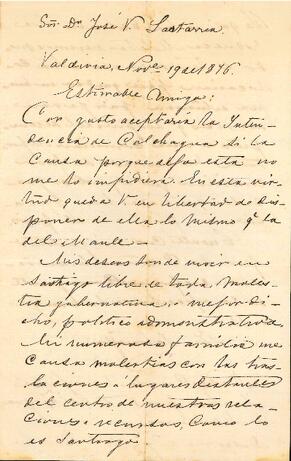 Sor. Dn. José V. Lastarria.
Valdivia, Nove. 19 de 1876.
Estimable Amigo:
Con gusto aceptaria la Inten
dencia de Colchagua si la
Causa porque dejo esta no
me lo impidiera. En esta vir
tud queda V. en libertad de dis
poner de ella lo mismo q. la
del Maule—
Mis deseos son de vivir en
Santiago libre de toda moles
tia gubernativa, o mejor di
cho, politico administrativa.
Mi numerosa familia me
causa molestias con las tras
laciones a lugares distantes
del centro de nuestras rela
ciones i recursos, como lo
es Santiago